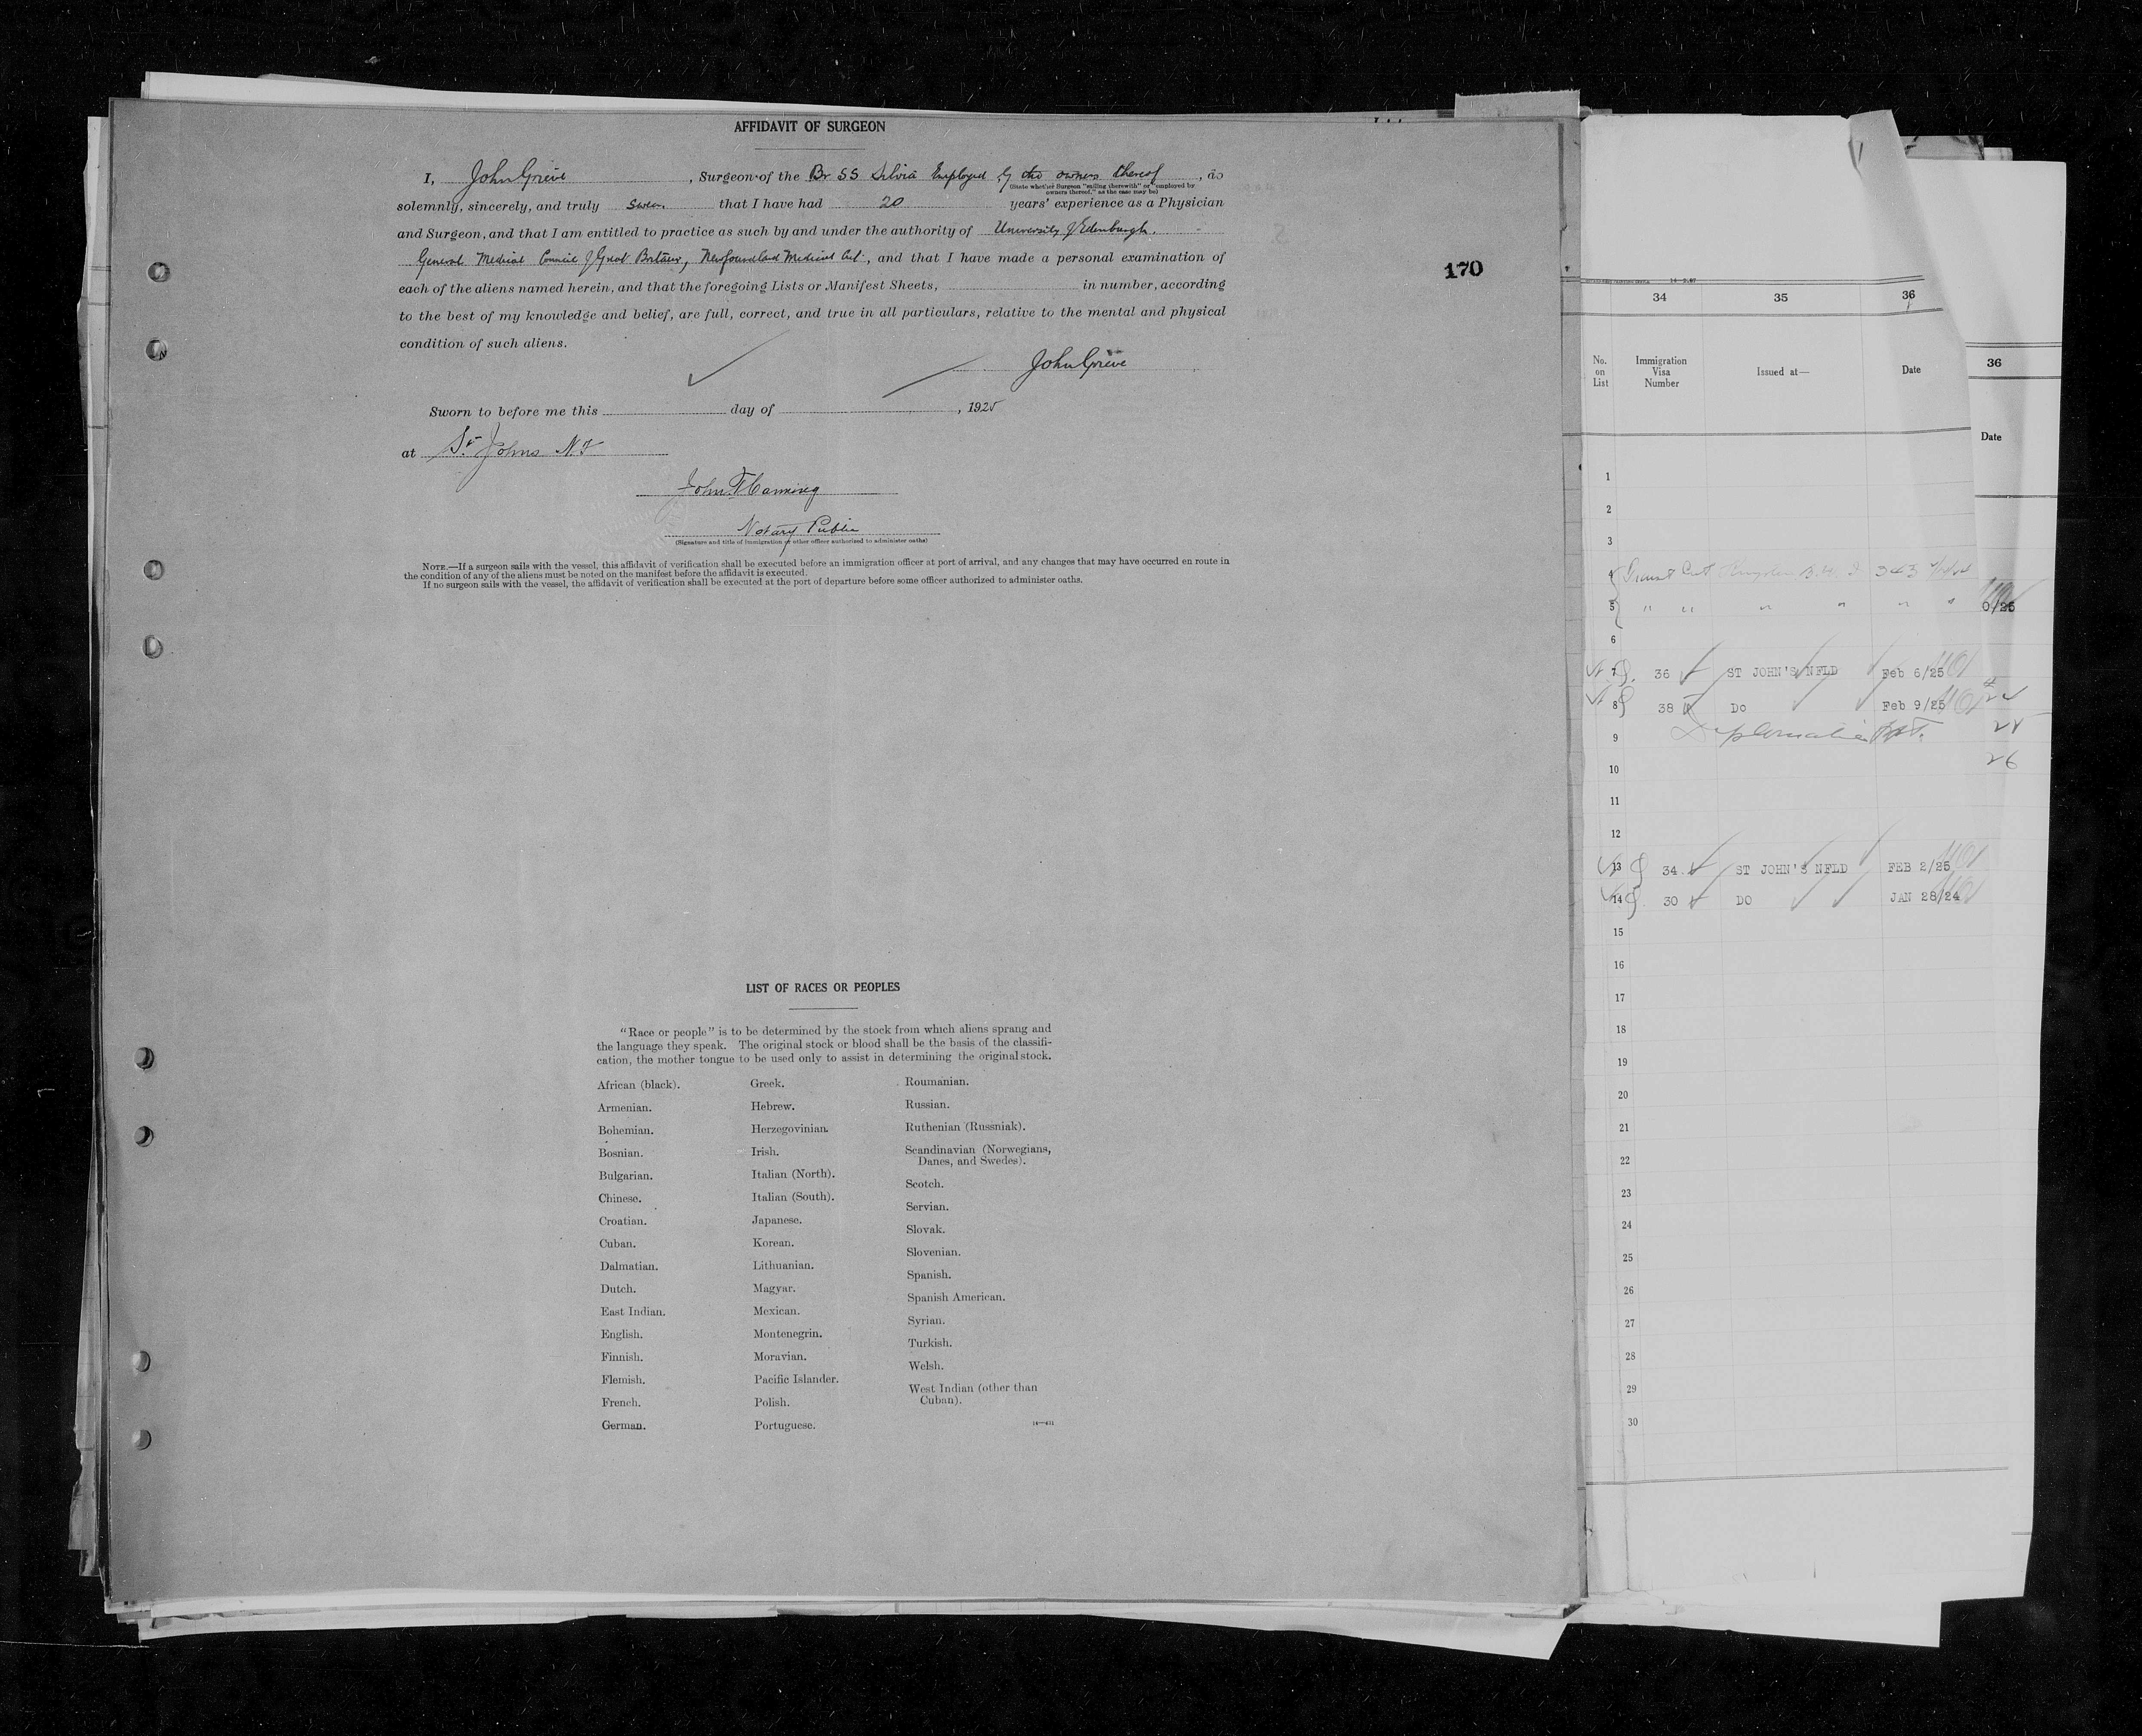 AFFIDAVIT OF SURGEON
I, John Grieve, Surgeon of the Br SS Silvia Employed by the owners thereof, do
(State whether Surgeon "sailing therewith" or "employed by
owners thereof," as the case may be)
solemnly, sincerely, and truly swear that I have had 20 years' experience as a Physician
and Surgeon, and that I am entitled to practice as such by and under the authority of University of Edinburgh.
General Medical Council of Great Britain, Newfoundland Medical Act, and that I have made a personal examination of
each of the aliens named herein, and that the foregoing Lists or Manifest Sheets, in number, according
to the best of my knowledge and belief, are full, correct, and true in all particulars, relative to the mental and physical
condition of such aliens.
John Grieve
Sworn to before me this day of , 1925
at St. Johns N.F
John
Notary Public
(Signature and title of immigration or other officer authorized to administer oaths)
NOTE.—If a surgeon sails with the vessel, this affidavit of verification shall be executed before an immigration officer at port of arrival, and any changes that may have occurred en route in
the condition of any of the aliens must be noted on the manifest before the affidavit is executed.
If no surgeon sails with the vessel, the affidavit of verification shall be executed at the port of departure before some officer authorized to administer oaths.
170
LIST OF RACES OR PEOPLES
"Race or people" is to be determined by the stock from which aliens sprang and
the language they speak. The original stock or blood shall be the basis of the classifi-
cation, the mother tongue to be used only to assist in determining the original stock.
African (black).
Armenian.
Bohemian.
Bosnian.
Bulgarian.
Chinese.
Croatian.
Cuban.
Dalmatian.
Dutch.
East Indian.
English.
Finnish.
Flemish.
French.
German.
Greek.
Hebrew.
Herzegovinian.
Irish.
Italian (North).
Italian (South).
Japanese.
Korean.
Lithuanian.
Magyar.
Mexican.
Montenegrin.
Moravian.
Pacific Islander.
Polish.
Portuguese.
Roumanian.
Russian.
Ruthenian (Russniak).
Scandinavian (Norwegians,
Danes, and Swedes).
Scotch.
Servian.
Slovak.
Slovenian.
Spanish.
Spanish American.
Syrian.
Turkish.
Welsh.
West Indian (other than
Cuban).
34 35 36
No.
on
List
Immigration
Visa
Number
Issued at—
Date
1
2
3
4 Transit Cert 343
5 " " " " "
6
7 36 ST JOHN'S NFLD Feb 6/25
8 38 Do Feb 9/25
9
10
11
12
13 34 ST JOHN'S NFLD FEB 2/25
14 30 DO JAN 28/24
15
16
17
18
19
20
21
22
23
24
25
26
27
28
29
30
36
Date
0/25
24
25
26